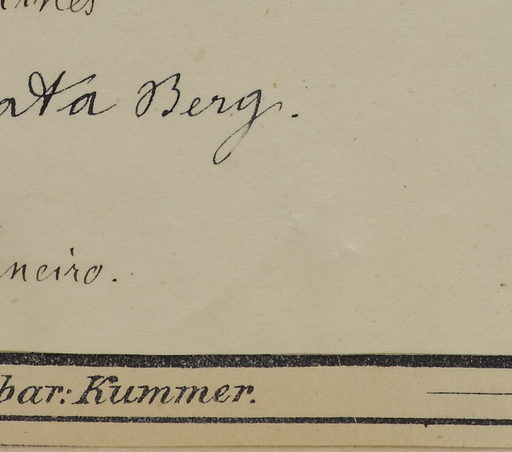 ata Berg.
neiro.
bar: Kummer.